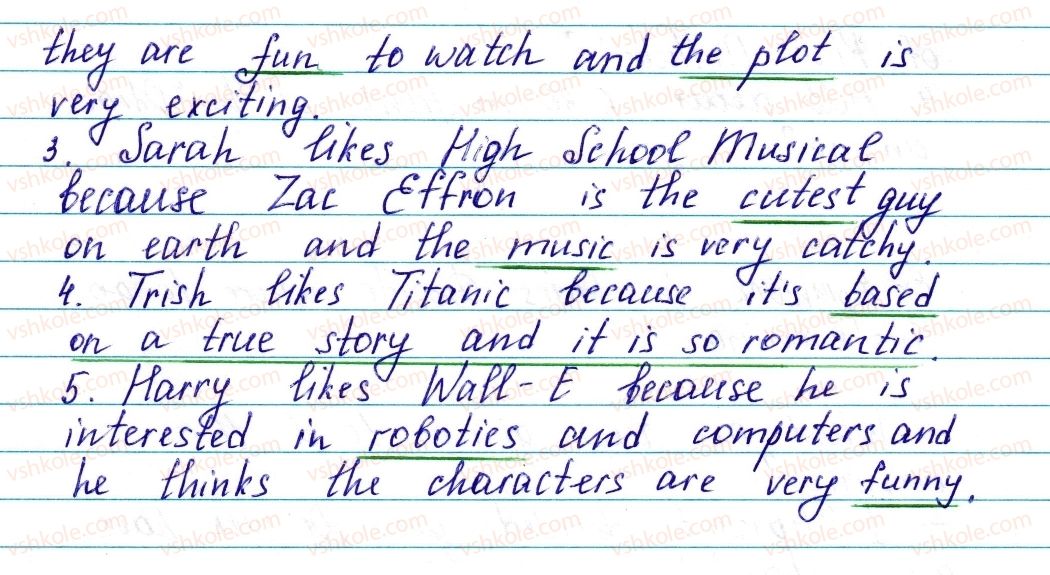 they are fun to watch and the plot is
very exciting.
3. Sarah likes High School Musical
because Zac Effron is the cutest guy
on earth and the music is very catchy.
4. Trish likes Titanic because it's based
on a true story and it is so romantic.
5. Harry likes Wall-E because he is
interested in robotics and computers and
he thinks the characters are very funny.